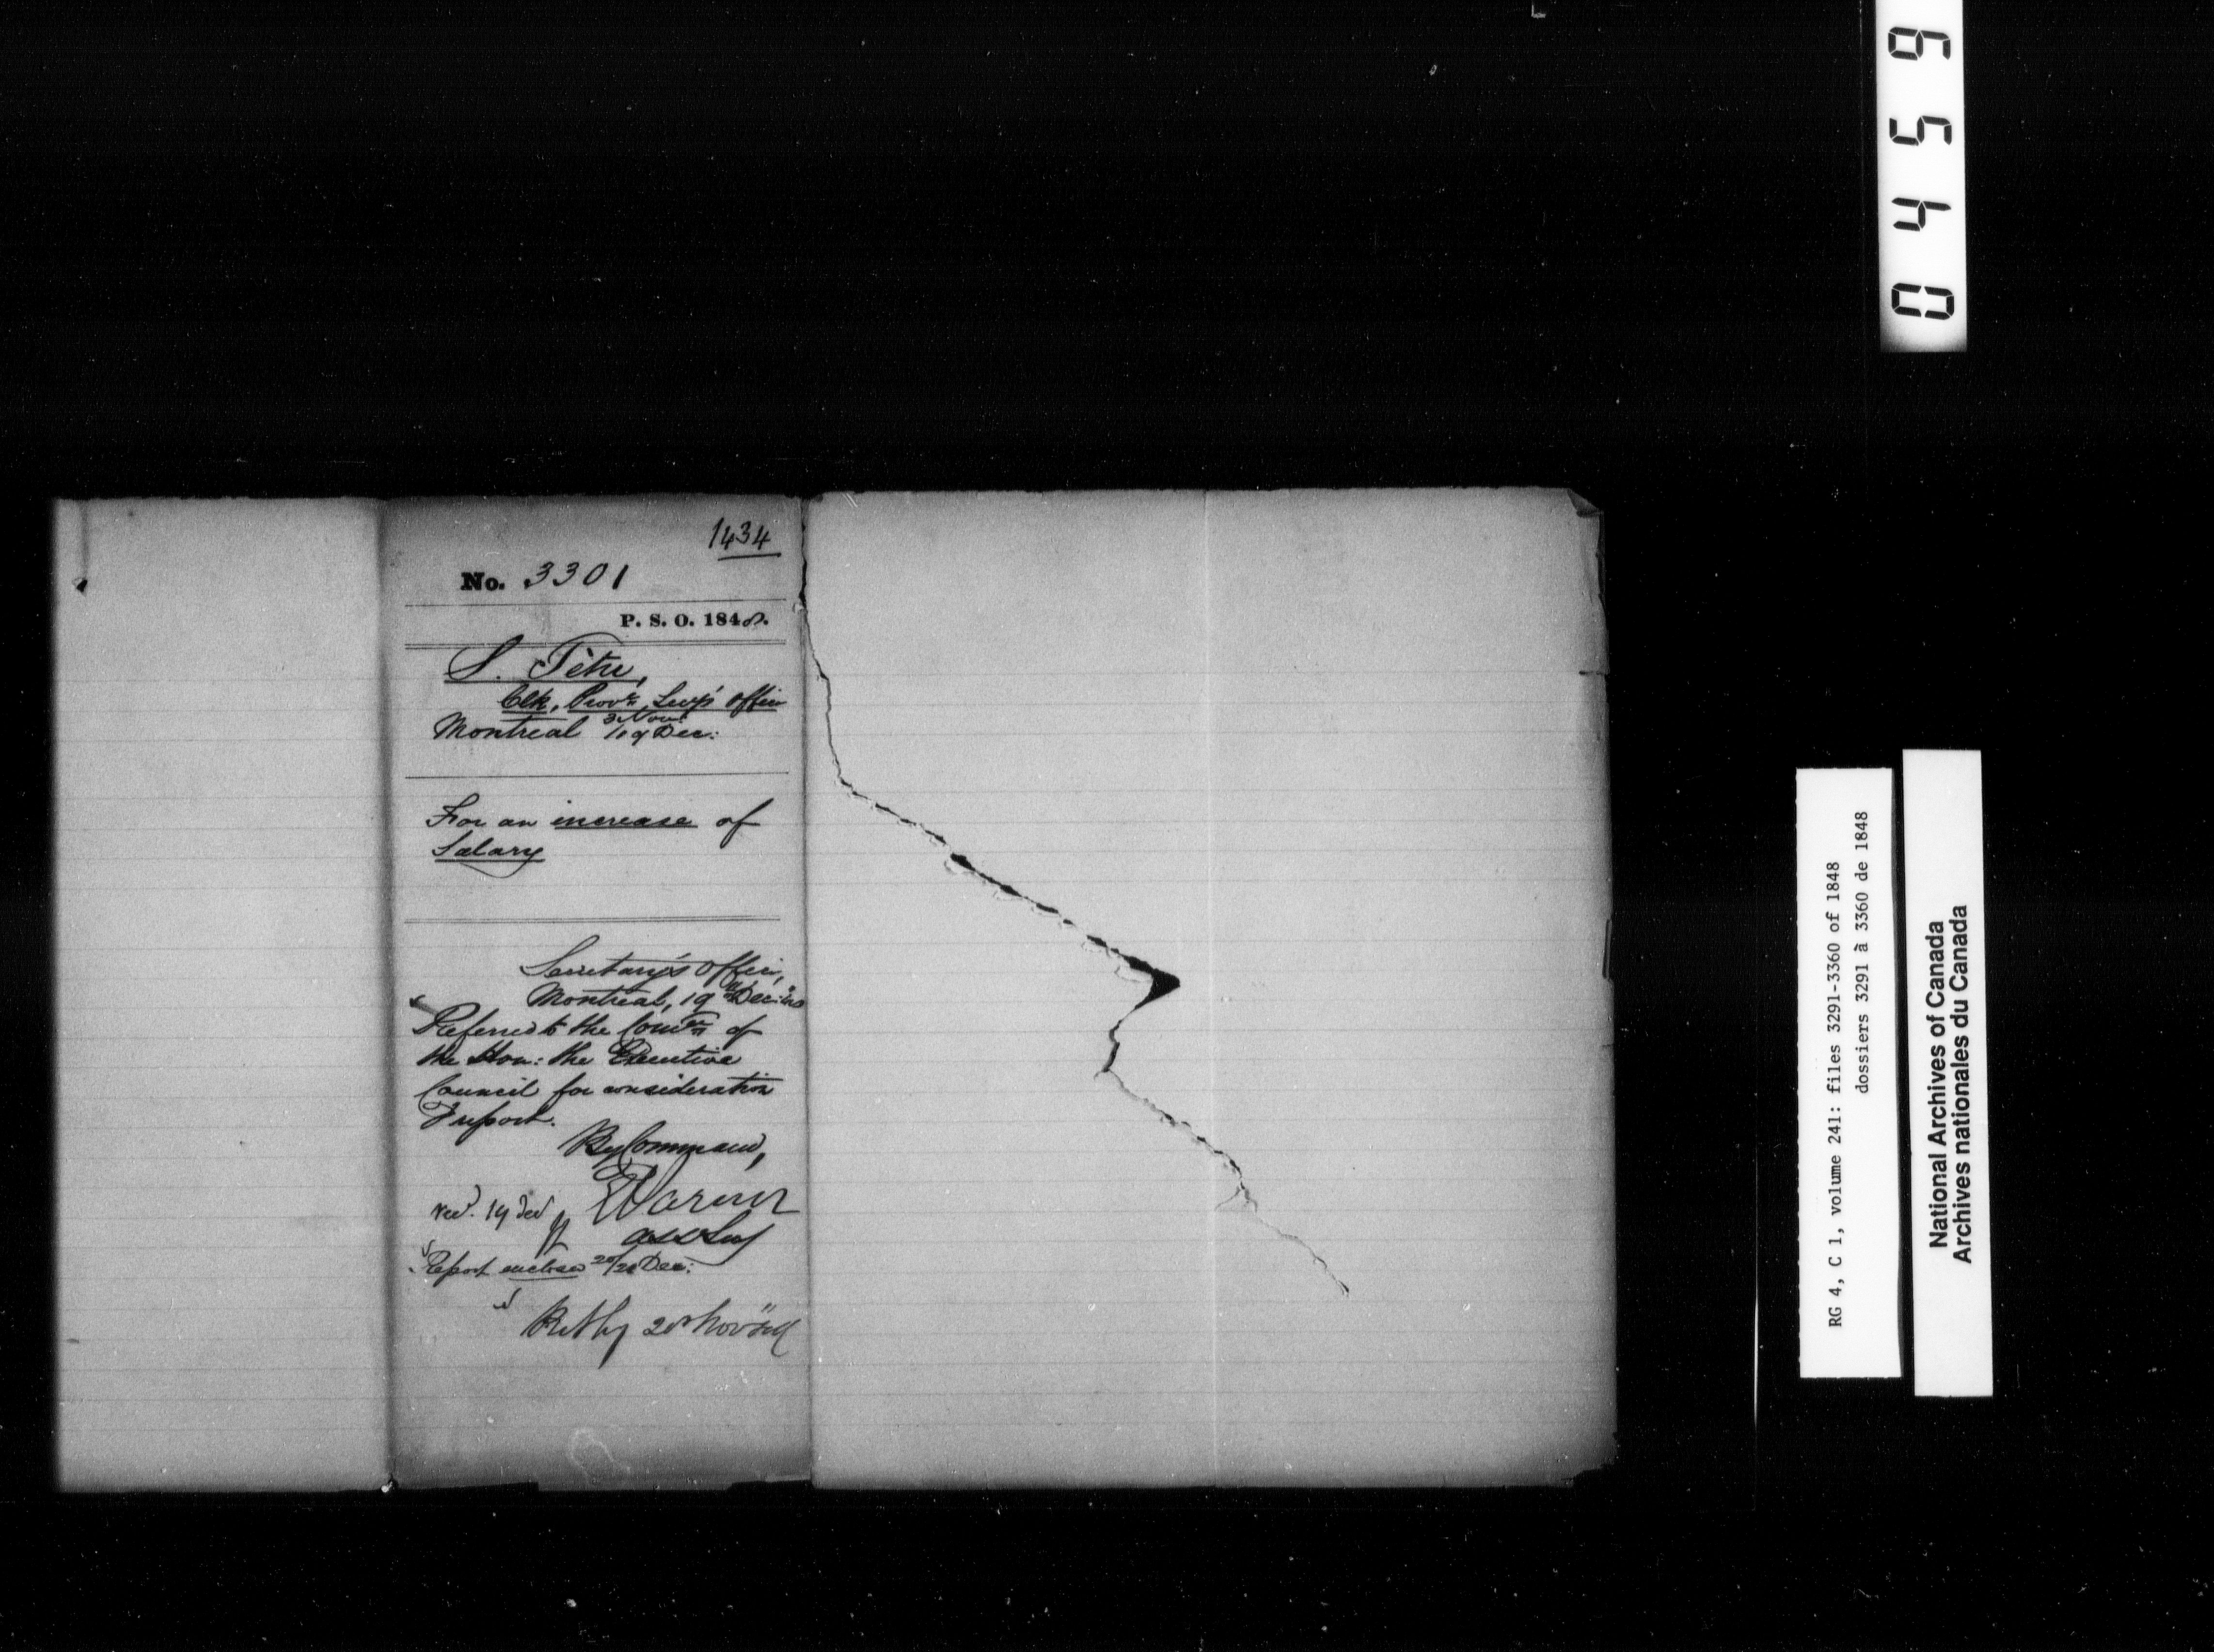 1434
No. 3301
P. S. O. 1848.
S. Têtu,
Clk, Provl. Secy's Office
3 Nov:
Montreal /19 Dec:
For an increase of
Salary
Secretary's Office,
Montreal, 19th Dec:
Referred to the Comee. of
the Hon: the Executive
Council for consideration
& report.
By Command,
Recd. 19 Dec
Asst Secy
Report enclosed 20/20 Dec:
0459
RG 4, C 1, volume 241: files 3291-3360 of 1848
dossiers 3291 à 3360 de 1848
National Archives of Canada
Archives nationales du Canada